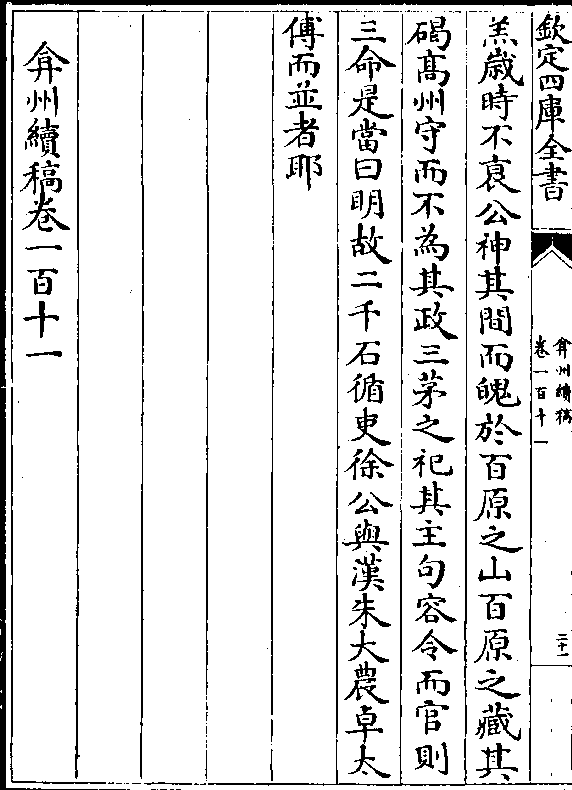 欽定四庫全書
弇州續稿
卷一百十一
二十一
羔歲時不衰公神其間而魄於百原之山百原之藏其
碣髙州守而不為其政三茅之祀其主句容令而官則
三命是當曰明故二千石循吏徐公與漢朱大農卓太
傅而並者耶
弇州續稿卷一百十一